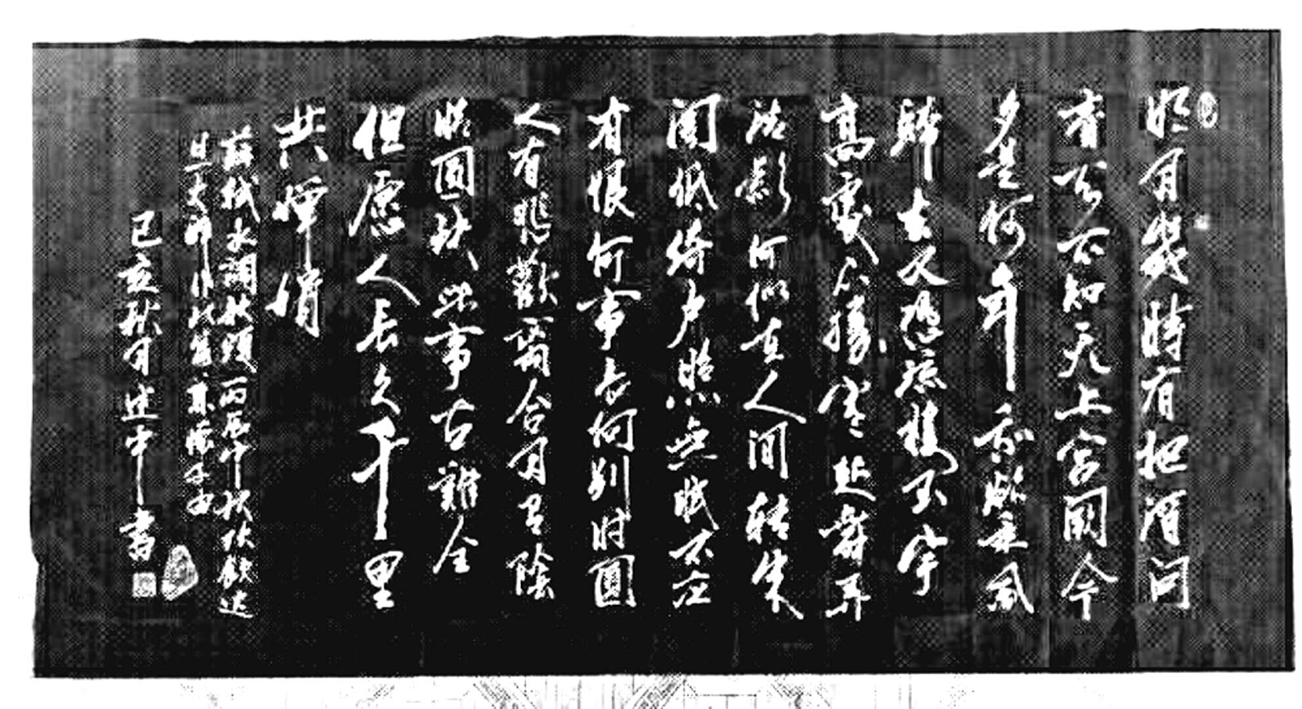 明月幾時有把酒问
青天不知天上宫阙今
夕是何年我欲乘风
歸去又恐琼楼玉宇
高處不勝寒起舞弄
清影何似在人间转朱
阁低绮户照无眠不应
有恨何事长向别时圆
人有悲歡離合月有陰
晴圆缺此事古難全
但愿人长久千里
共嬋娟
蘇軾水调歌頭丙辰中秋欢饮达
旦大醉作此篇兼懷子由
己亥秋月建中書